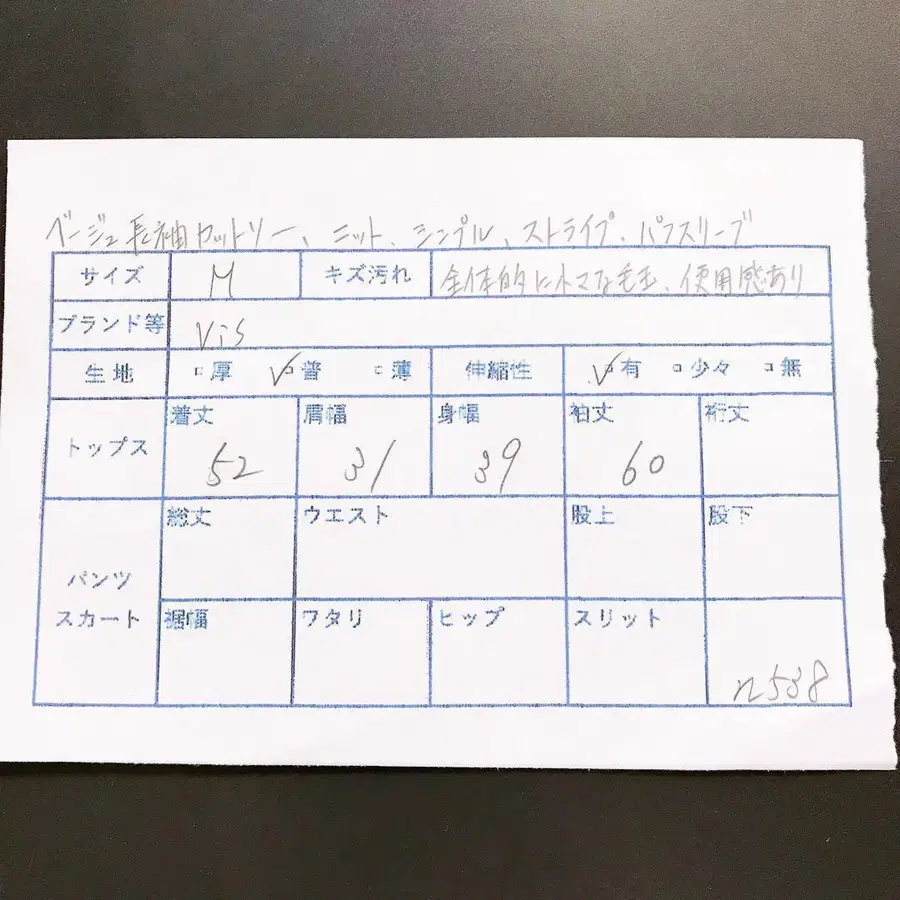 ベージュ長袖カットソー、ニット、シンプル、ストライプ、パフスリーブ
サイズ M キズ汚れ 全体的に小さな毛玉、使用感あり
ブランド等 Vis
生地 □厚 ☑普 □薄 伸縮性 ☑有 □少々 □無
トップス 着丈 52 肩幅 31 身幅 39 袖丈 60 裄丈
パンツ スカート 総丈 ウエスト 股上 股下
裾幅 ワタリ ヒップ スリット n538